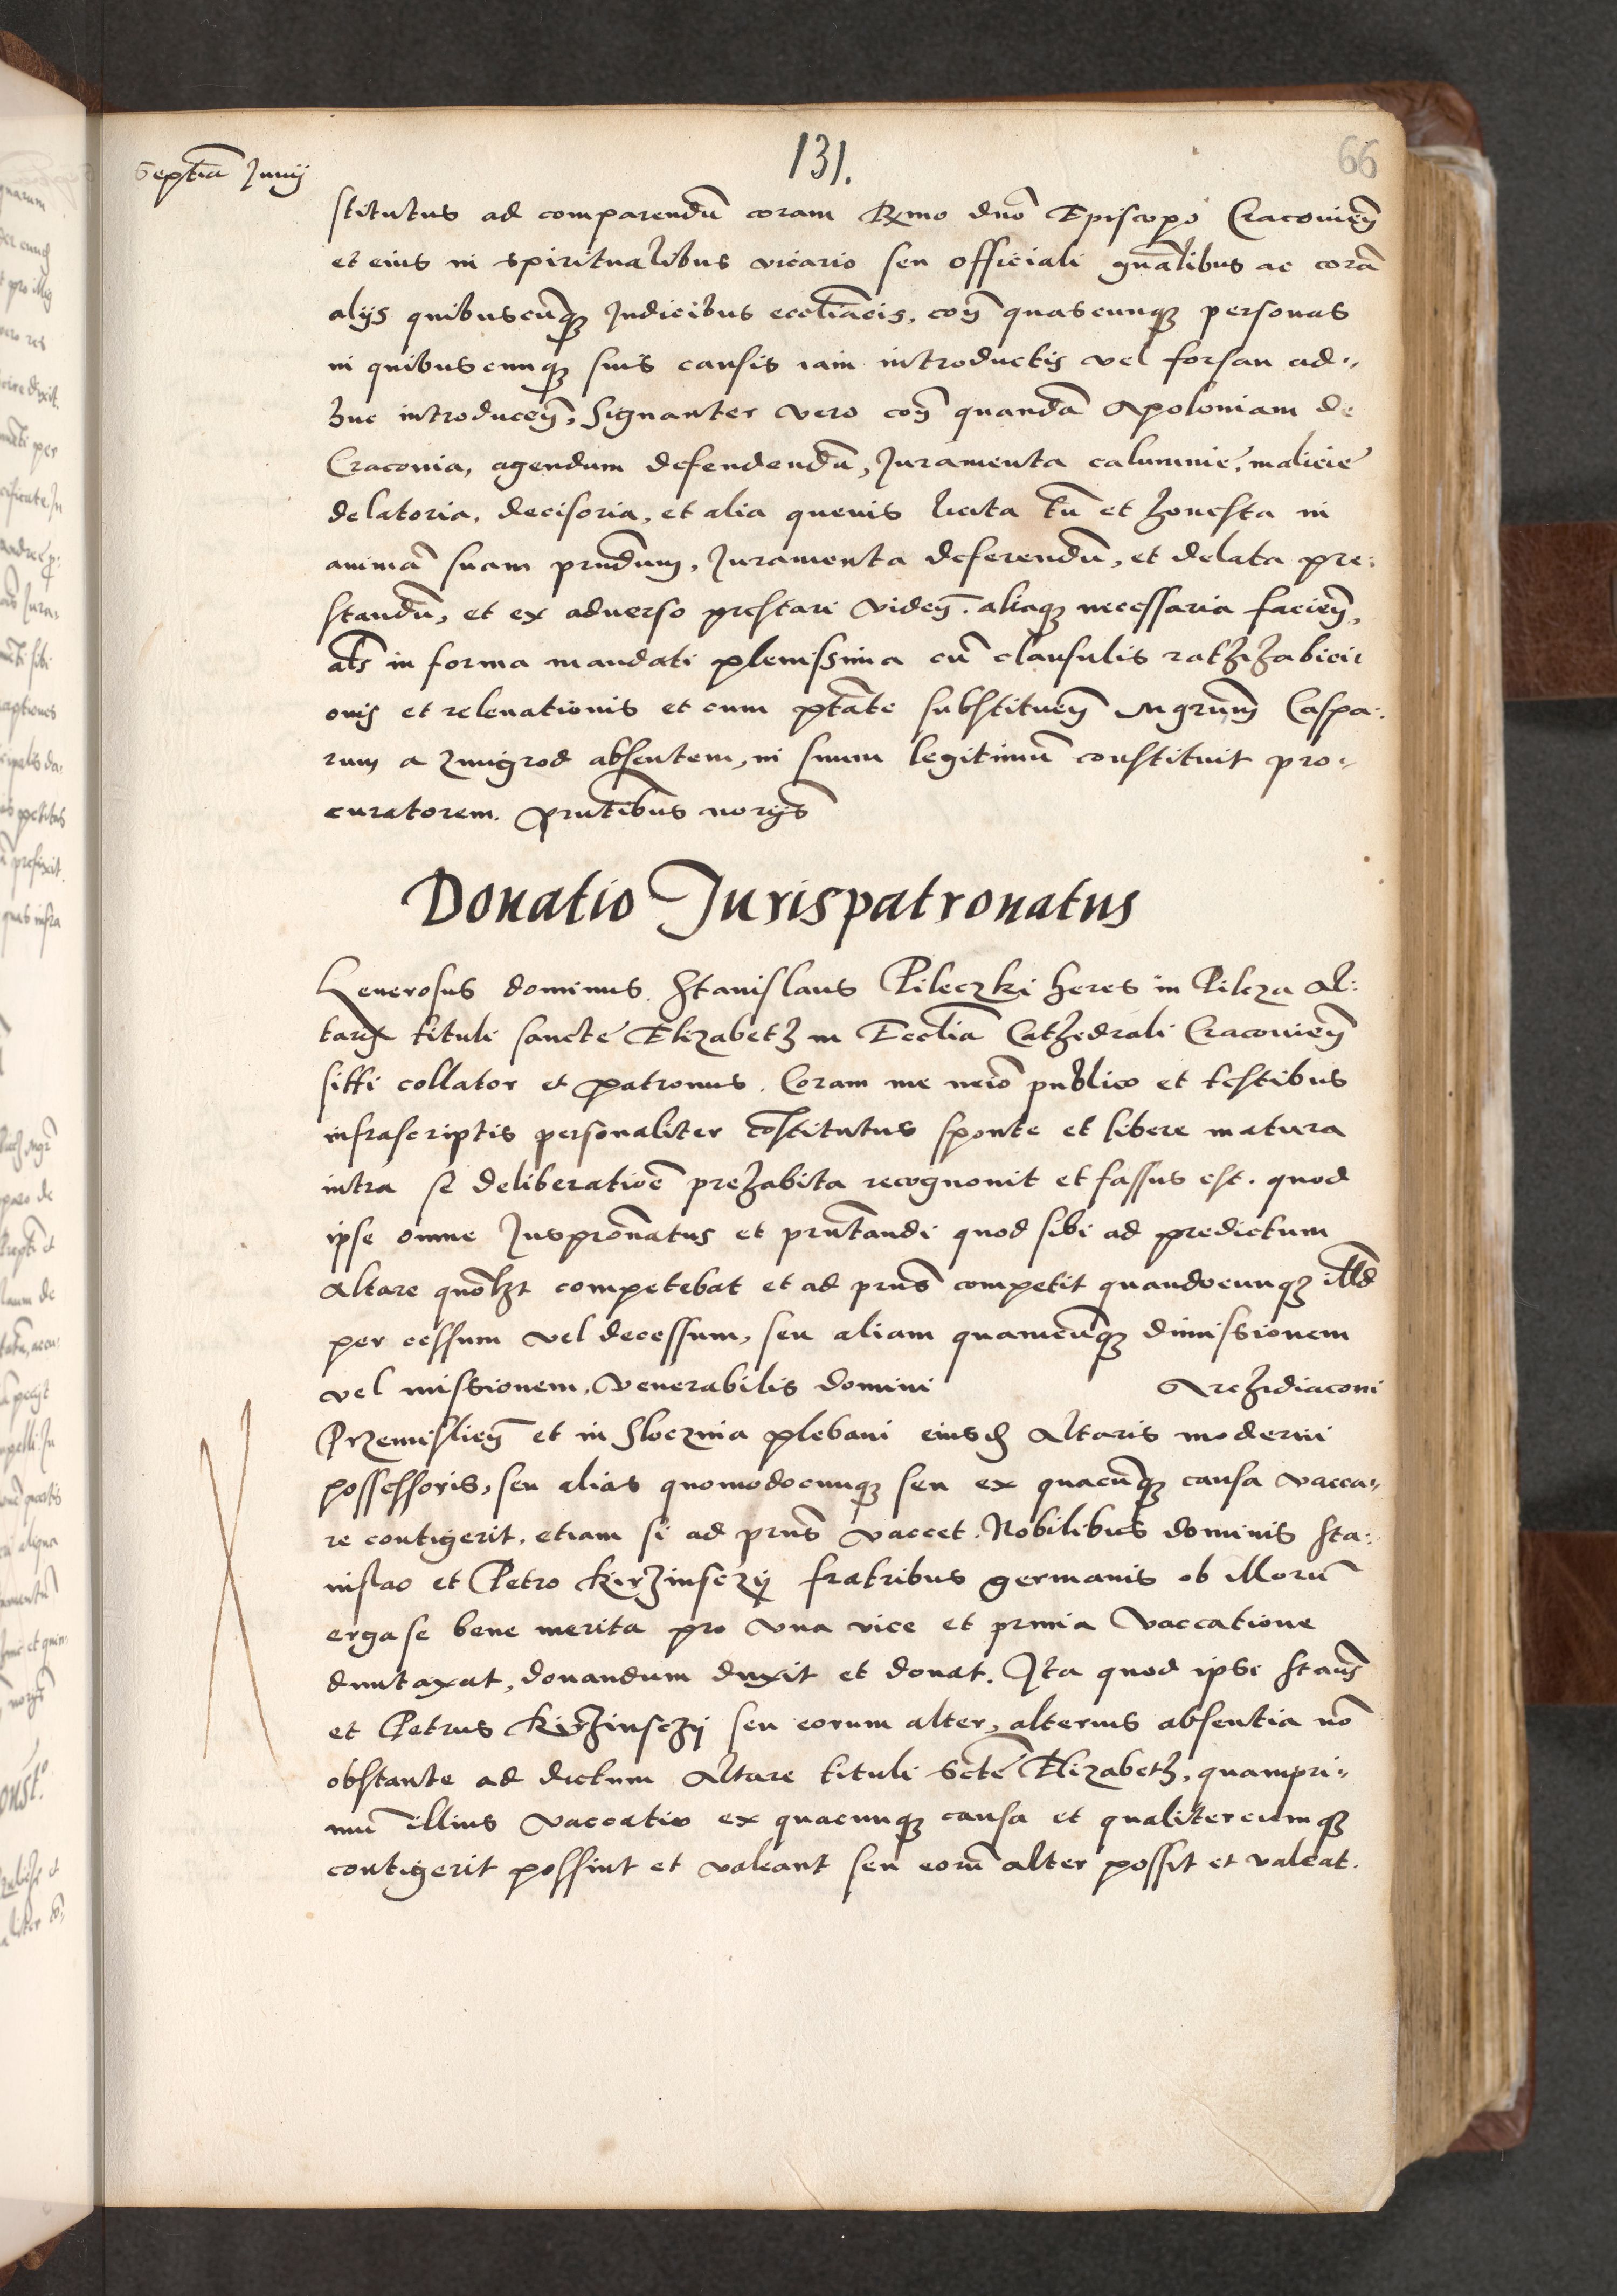 131.
66
Septiã Junij
stitutus ad comparendũ coram Rx̃mo dño Episcopo Cracovieñ
et eius in spiritualibus vicario seu officiali gñalibus ac corã
alijs quibuscũqʒ Judicibus ecclĩacis, coñ quascunqʒ personas
in quibuscunqʒ suis causis iam introductis vel forsan ad-
huc introduceñ, Signanter vero coñ quandã Apoloniam de
Craconia, agendum defendendũ, Juramenta calumnie, malicie
delatoria, decisoria, et alia quevis licita tñ et honesta in
animã suam prñdum, Juramenta deferendũ, et delata pre:
standũ, et ex adverso prestari videñ. aliaqʒ necessaria facieñ,
als̃ in forma mandati plenissima cũ clausulis rathihabici-
onis et relevationis et cum ptãte substitueñ Mgrũm Caspa:
rum a Zmigrod absentem, in suum legitimũ constituit pro-
curatorem. Prñtibus norijs̃
Donatio Jurispatronatus
Generosus dominus Stanislaus Pileczki heres in Pilcza Al:
taris tituli sancte Elizabeth in Ecclĩa Cathedrali Cracovieñ
siti collator et patronus. Coram me neiõ publico et testibus
infrascriptis personaliter cõstitutus sponte et libere matura
intra se deliberatiõe prehabita recognovit et fassus est. quod
ipse omne Jusprõnatus et prñtandi quod sibi ad predictum
Altare quõlzt competebat et ad prñs competit quandocunqʒ illd̃
per cessum vel decessum, seu aliam quamcũqʒ dimissionem
vel missionem, Venerabilis domini Archidiaconi
Przemislieñ et in Sloczina plebani eiusd Altaris moderni
possessoris, seu alias quomodocunqʒ seu ex quacũqʒ causa vacca-
re contigerit, etiam si ad prñs vaccet. Nobilibus dominis Sta:
nislao et Petro Kirzinsczij fratribus germanis ob illorũ
erga se bene merita pro una vice et prmia vaccatione
duntaxat, donandum duxit et donat. Ita quod ipsi Stañs
et Petrus Kirzinsczij seu eorum alter, alterius absentia nõ
obstante ad dictum Altare tituli Sctẽ Elizabeth, quampri-
mũ illius vaccatio ex quacunqʒ causa et qualitercumqʒ
contigerit possint et valeant seu eorũ alter possit et valeat.